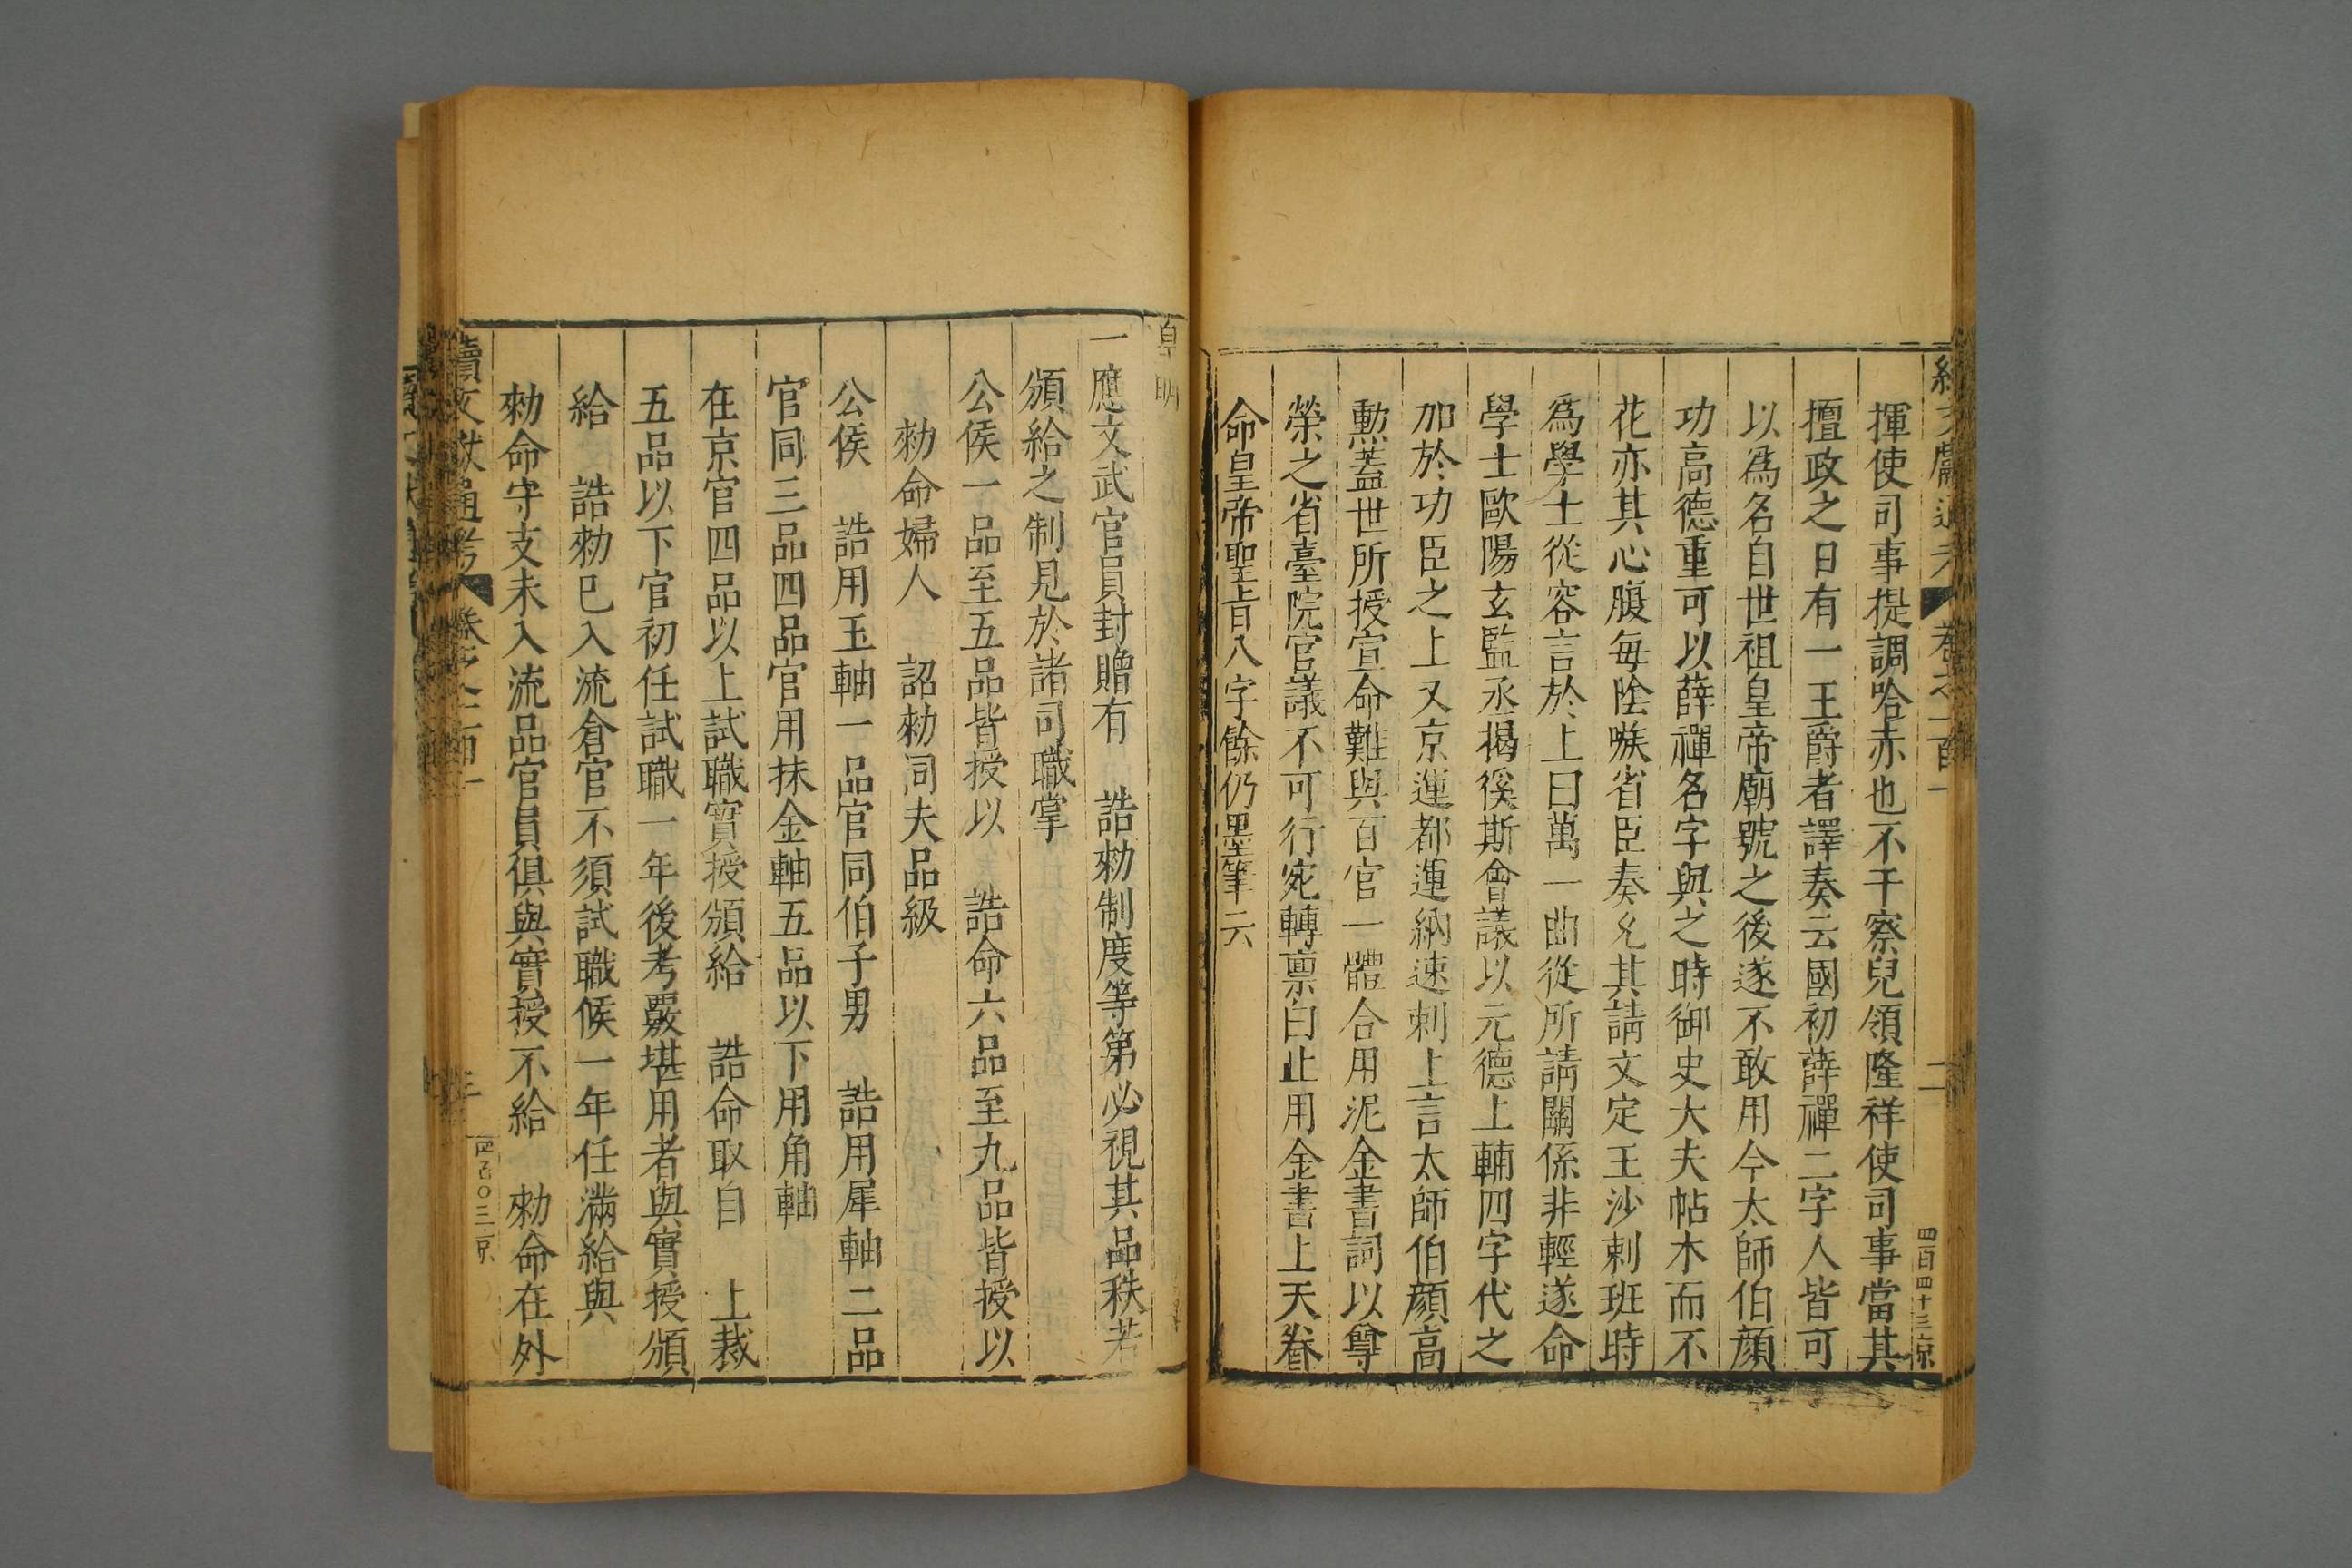 揮使司事提調哈赤也不干察兒領隆祥使司事當其
擅政之日有一王爵者譯奏云國初薛禪二字人皆可
以爲名自世祖皇帝廟號之後遂不敢用今太師伯顔
功高德重可以薛禪名字與之時御史大夫帖木而不
花亦其心腹每陰嗾省臣奏允其請文定王沙剌班時
爲學士從容言於上曰萬一曲從所請關係非輕遂命
學士歐陽玄監丞揭徯斯會議以元德上輔四字代之
加於功臣之上又京運都運納速剌上言太師伯顔高
勳蓋世所授宣命難與百官一體合用泥金書詞以尊
榮之省臺院官議不可行宛轉禀白止用金書上天眷
命皇帝聖旨八字餘仍墨筆云
皇明
一應文武官員封贈有 誥勑制度等第必視其品秩若
頒給之制見於諸司職掌
公侯一品至五品皆授以 誥命六品至九品皆授以
勑命婦人 詔勑同夫品級
公侯 誥用玉軸一品官同伯子男 誥用犀軸二品
官同三品四品官用抹金軸五品以下用角軸
在京官四品以上試職實授頒給 誥命取自 上裁
五品以下官初任試職一年後考覈堪用者與實授頒
給 誥勑巳入流倉官不須試職候一年任滿給與
勑命守支未入流品官員俱與實授不給 勑命在外
續文獻通考 卷之一百一